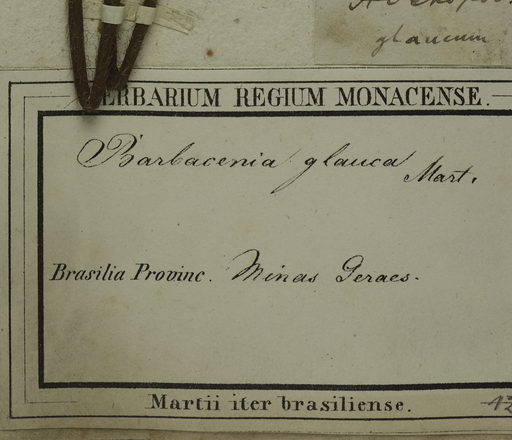 glaucum
HERBARIUM REGIUM MONACENSE.
Barbacenia glauca Mart.
Brasilia Provinc. Minas Geraes.
Martii iter brasiliense.